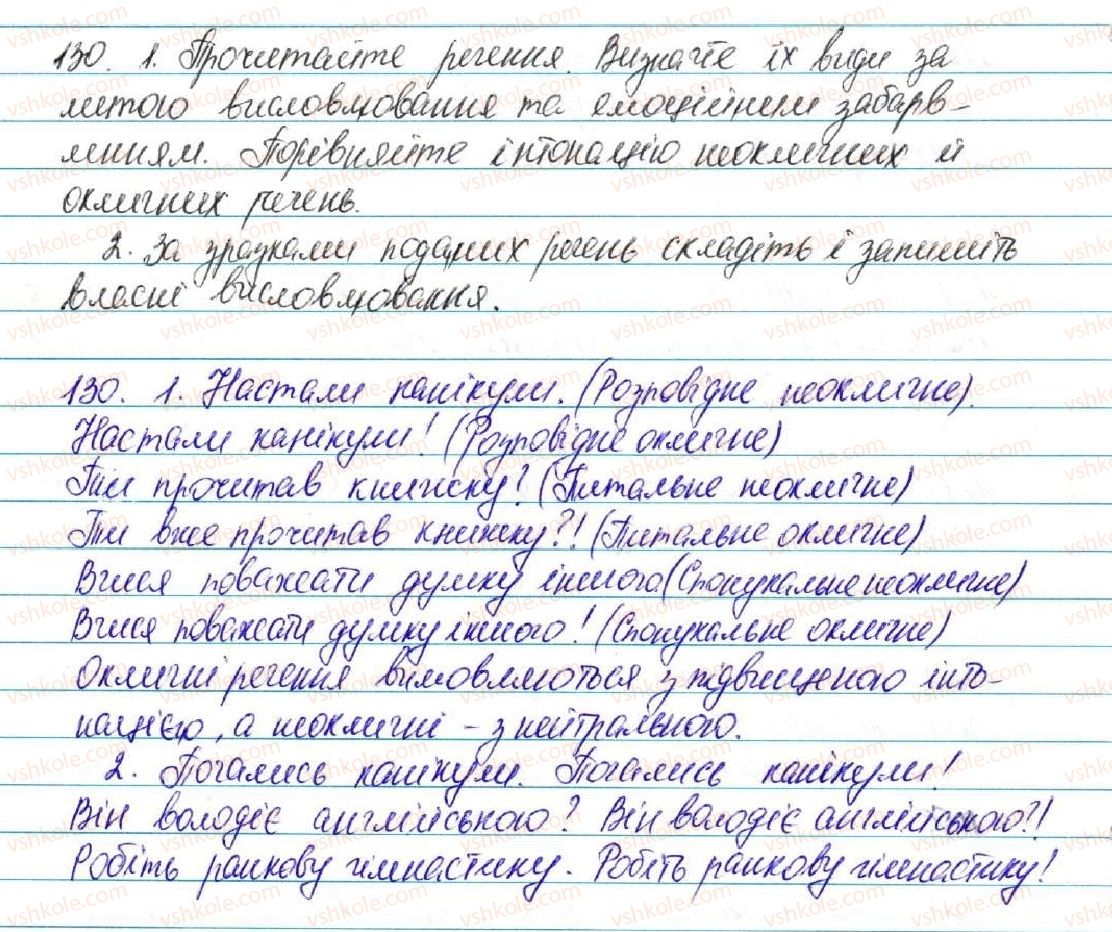 130. 1. Прочитайте речення. Визначте їх види за
метою висловлювання та емоційним забарв-
ленням. Порівняйте інтонацію неокличних й
окличних речень.
2. За зразками поданих речень складіть і запишіть
власні висловлювання.
130. 1. Настали канікули. (Розповідне неокличне).
Настали канікули! (Розповідне окличне)
Ти прочитав книжку? (Питальне неокличне)
Ти вже прочитав книжку?! (Питальне окличне)
Вчися поважати думку іншого (Спонукальне неокличне)
Вчися поважати думку іншого! (Спонукальне окличне)
Окличні речення вимовляються з підвищеною інто-
нацією, а неокличні – з нейтральною.
2. Почались канікули. Почались канікули!
Він володіє англійською? Він володіє англійською?!
Робіть ранкову гімнастику. Робіть ранкову гімнастику!